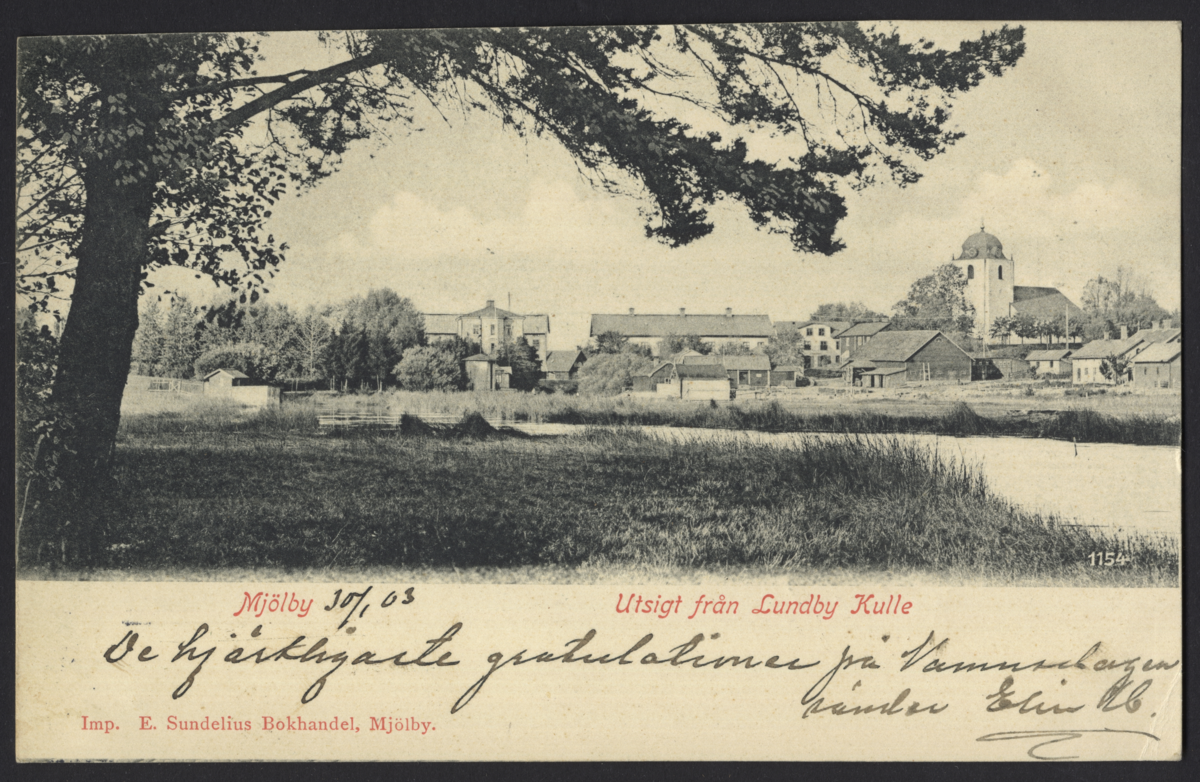 1154
Mjölby 30/1 03 Utsigt från Lundby Kulle
De hjärkligaste gratulationer på Namnsdagen
sänder Elin
Imp. E. Sundelius Bokhandel, Mjölby.